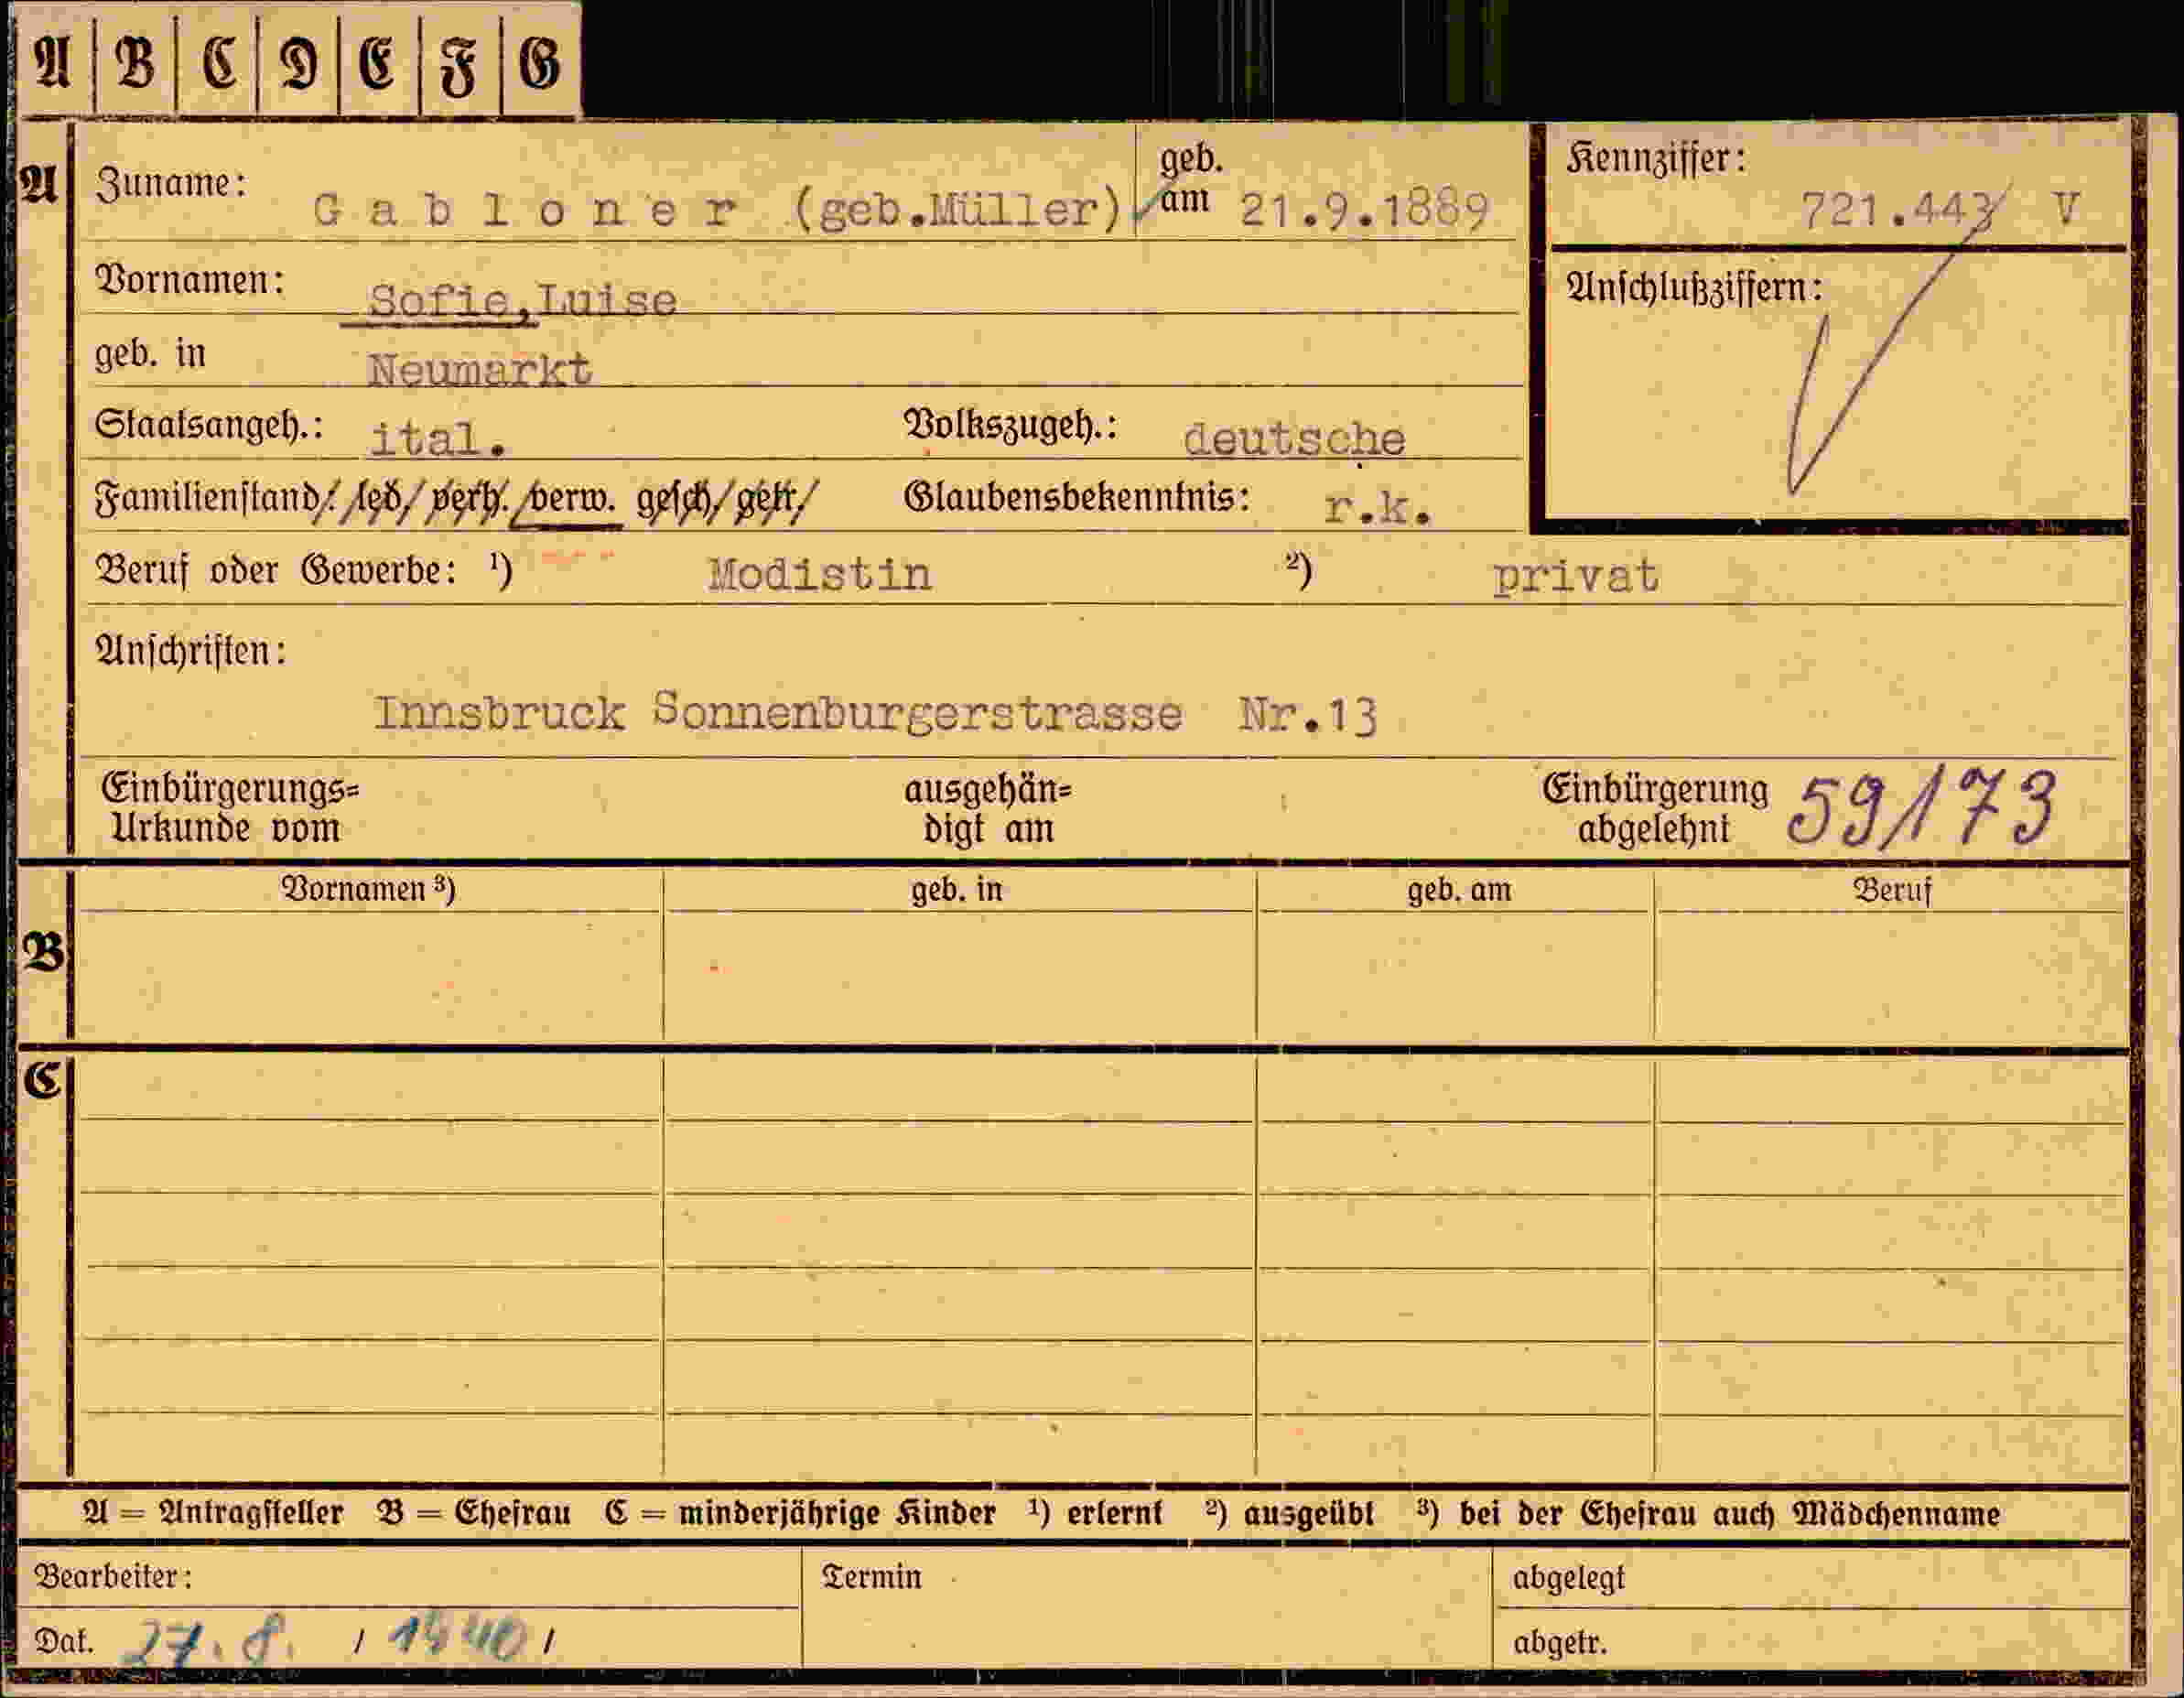 A B C D E F G
A
Zuname: Gabloner (geb.Müller) geb. am 21.9.1889
Kennziffer: 721.443 V
Vornamen: Sofie,Luise
Anschlußziffern:
geb. in Neumarkt
Staatsangeh.: ital. Volkszugeh.: deutsche
Familienstand/: led/ verh. verw. gesch/ getr/ Glaubensbekenntnis: r.k.
Beruf oder Gewerbe: ¹) Modistin ²) privat
Anschriften:
Innsbruck Sonnenburgerstrasse Nr.13
Einbürgerungs= ausgehän= Einbürgerung 59/173
Urkunde vom digt am abgelehnt
Vornamen ³) geb. in geb. am Beruf
B
C
A = Antragsteller B = Ehefrau C = minderjährige Kinder ¹) erlernt ²) ausgeübt ³) bei der Ehefrau auch Mädchenname
Bearbeiter: Termin abgelegt
Dat. 27.8. / 1940 / abgetr.